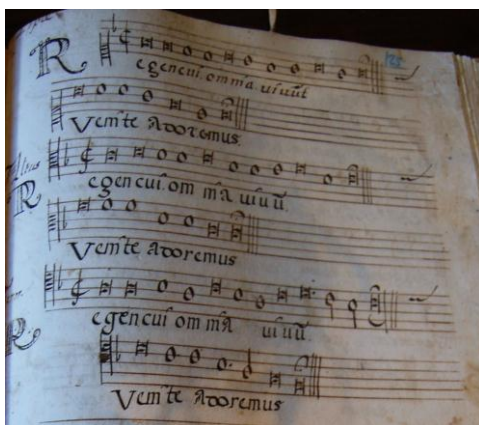 Regencui omnia uiuūt
Venite Adoremus
Regencui omnia uiuū
Venite Adoremus
Regencui omnia uiuū.
Venite Adoremus